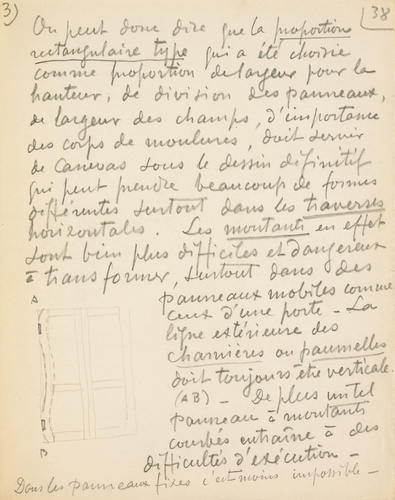 3)
38
On peut donc dire que la proportion
rectangulaire type qui a été choisie
comme proportion de largeur pour la
hauteur, de division des panneaux,
de largeur des champs, d'importance
des corps de moulures, doit servir
de canevas sous le dessin définitif
qui peut prendre beaucoup de formes
différentes surtout dans les traverses
horizontales. Les montants en effet
sont bien plus difficiles et dangereux
à transformer, surtout dans des
panneaux mobiles comme
ceux d'une porte - La
ligne extérieure des
charnières ou paumelles
doit toujours être verticale.
(AB) - De plus un tel
panneau à montants
courbés entraîne à des
difficultés d'exécution -
A
B
Dans les panneaux fixes c'est moins impossible -